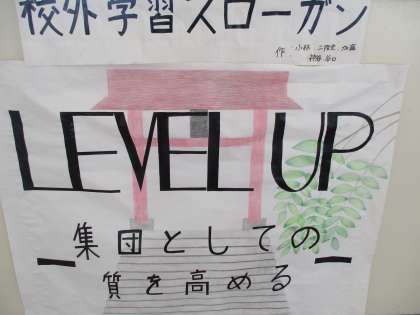 校外学習スローガン
作：小林
LEVEL UP
集団としての
質を高める